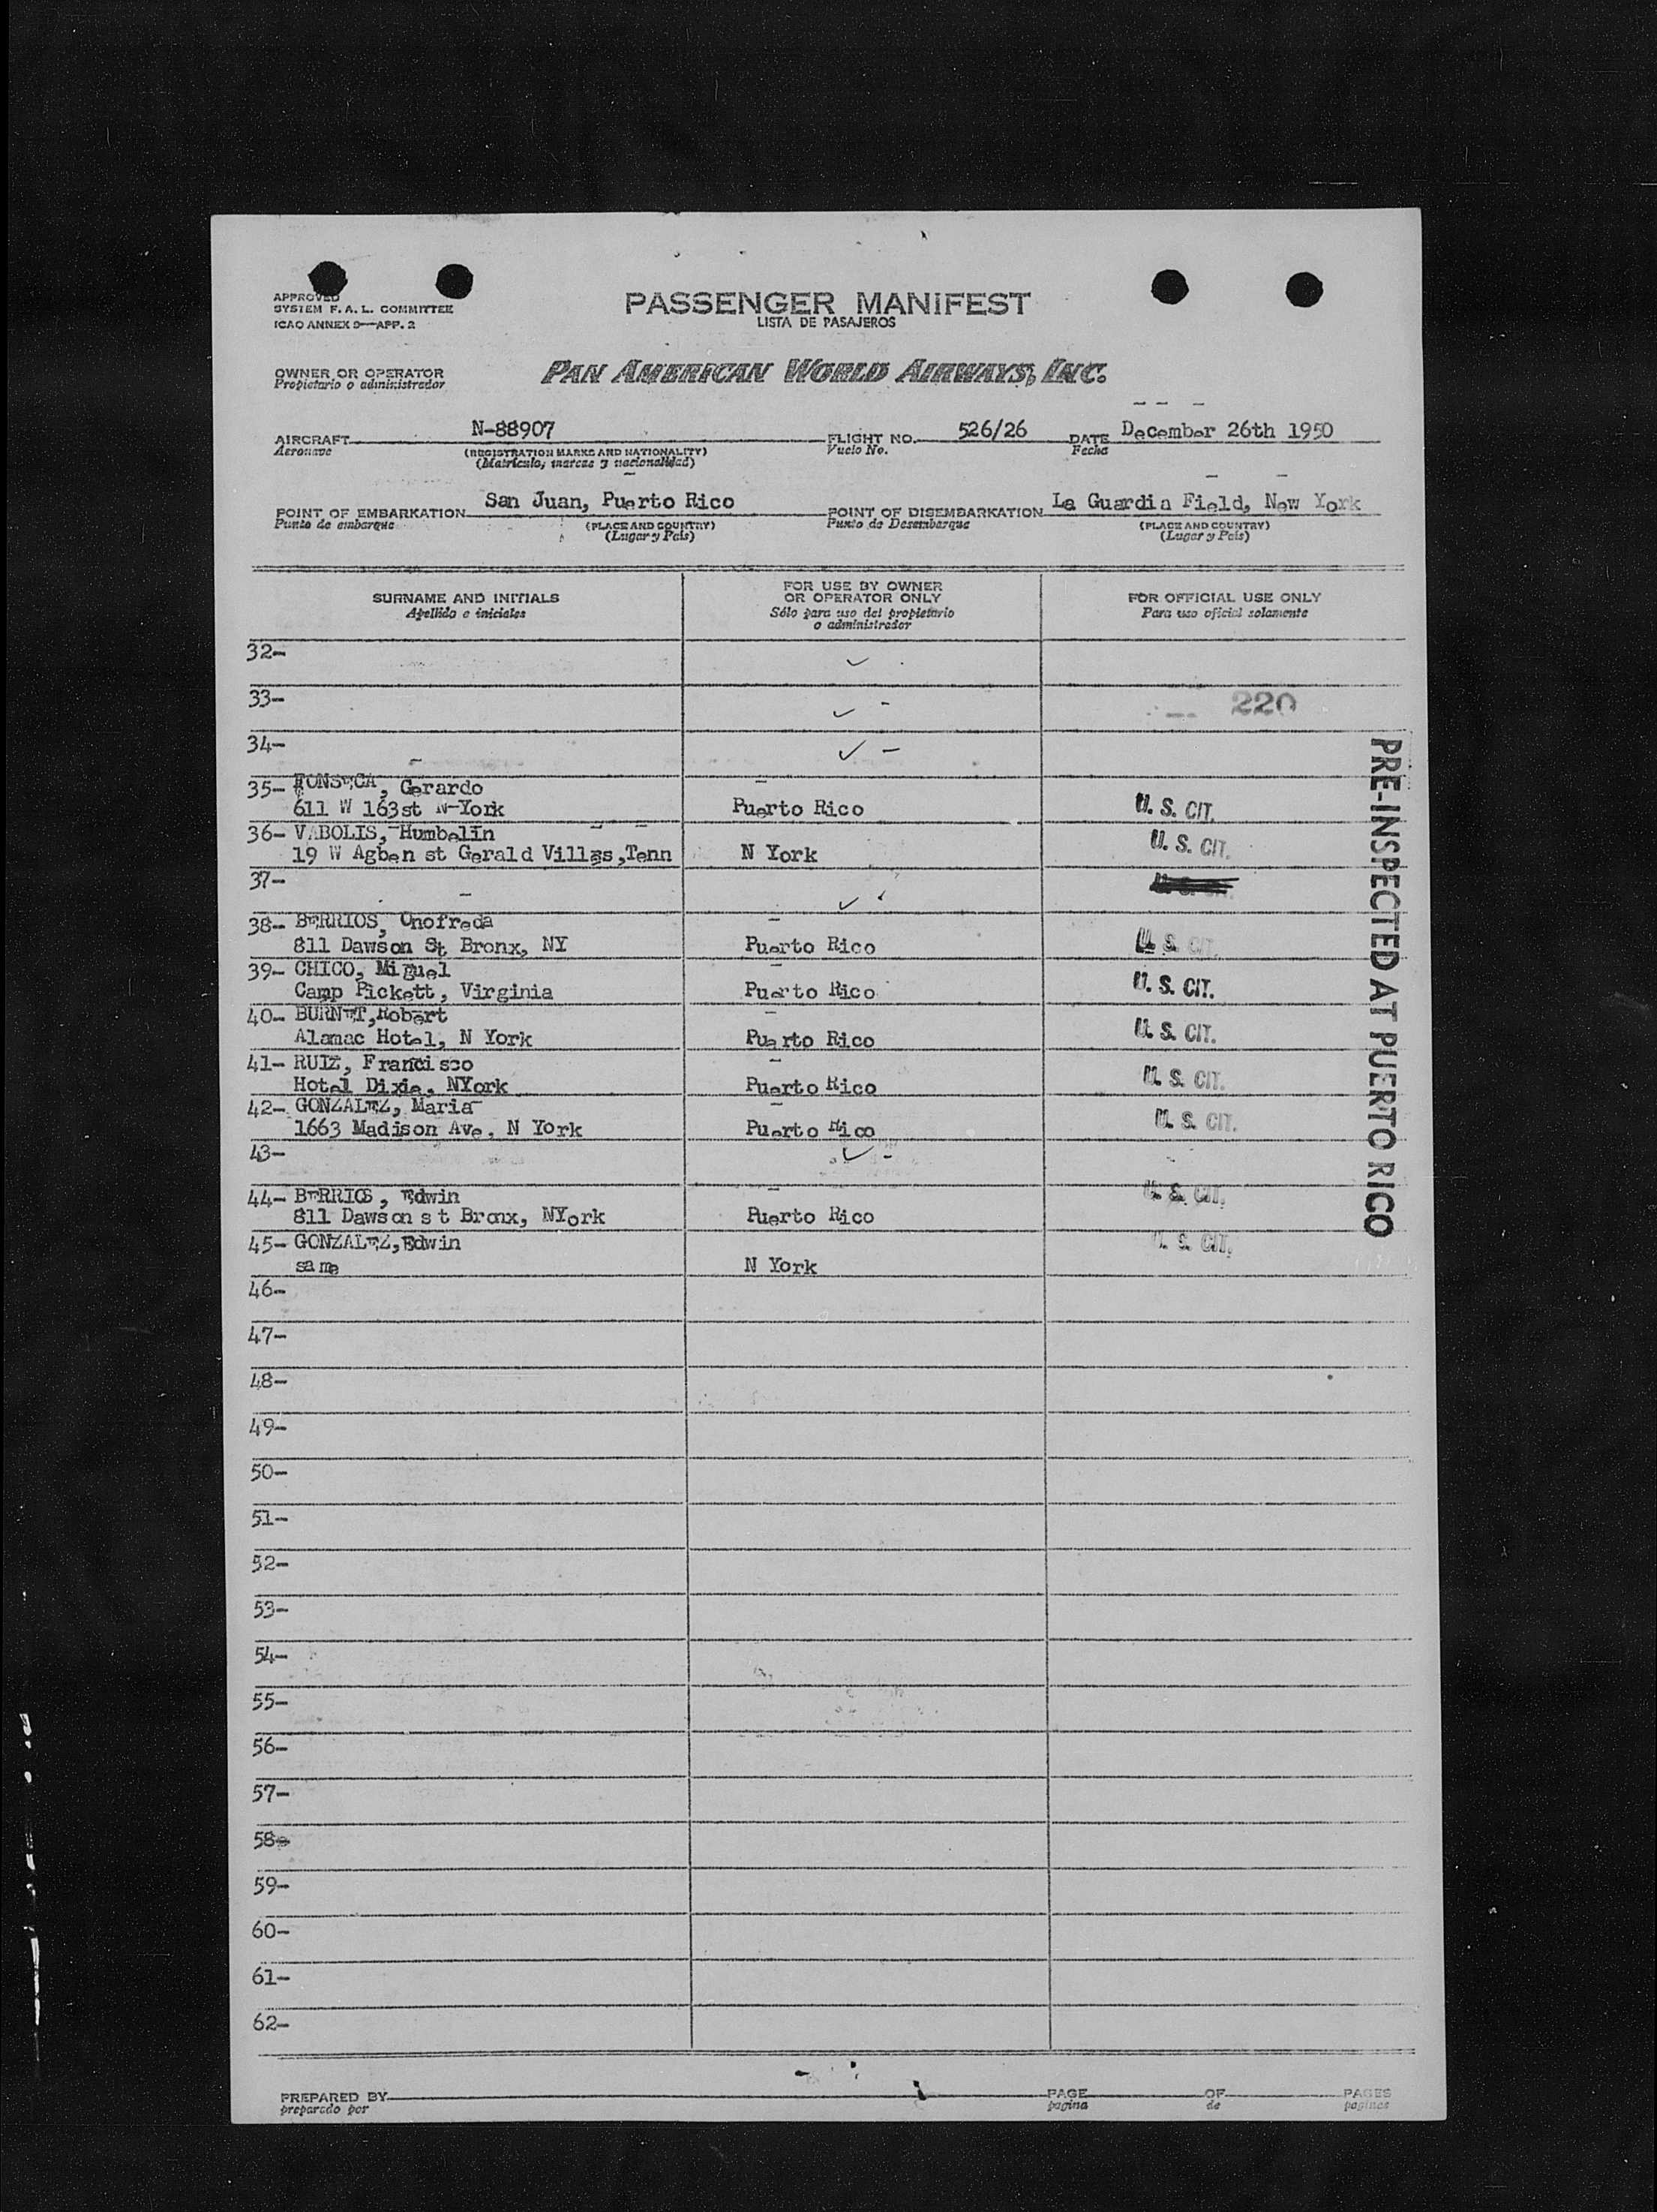 APPROVED
SYSTEM F. A. L. COMMITTEE
ICAO ANNEX 9—APP. 2
PASSENGER MANIFEST
LISTA DE PASAJEROS
OWNER OR OPERATOR
Propietario o administrador
PAN AMERICAN WORLD AIRWAYS, INC.
AIRCRAFT N-88907 FLIGHT NO. 526/26 DATE December 26th 1950
Aeronave (REGISTRATION MARKS AND NATIONALITY) Vuelo No. Fecha
(Matrícula, marcas y nacionalidad)
POINT OF EMBARKATION San Juan, Puerto Rico POINT OF DISEMBARKATION La Guardia Field, New York
Punto de embarque (PLACE AND COUNTRY) Punto de Desembarque (PLACE AND COUNTRY)
(Lugar y País) (Lugar y País)
SURNAME AND INITIALS
Apellido e iniciales
FOR USE BY OWNER
OR OPERATOR ONLY
Sólo para uso del propietario
o administrador
FOR OFFICIAL USE ONLY
Para uso oficial solamente
32-
33- 220
34-
35- FONSECA, Gerardo
611 W 163st N-York Puerto Rico U. S. CIT.
36- VABOLIS, Humbelin
19 W Agben st Gerald Villas,Tenn N York U. S. CIT.
37-
38- BERRIOS, Onofreda
811 Dawson St Bronx, NY Puerto Rico U. S. CIT.
39- CHICO, Miguel
Camp Pickett, Virginia Puerto Rico U. S. CIT.
40- BURNET,Robert
Alamac Hotel, N York Puerto Rico U. S. CIT.
41- RUIZ, Francisco
Hotel Dixie, NYork Puerto Rico U. S. CIT.
42- GONZALEZ, Maria
1663 Madison Ave. N York Puerto Rico U. S. CIT.
43-
44- BERRIOS, Edwin U. S. CIT.
811 Dawson st Bronx, NYork Puerto Rico
45- GONZALEZ,Edwin U. S. CIT.
same N York
46-
47-
48-
49-
50-
51-
52-
53-
54-
55-
56-
57-
58-
59-
60-
61-
62-
PRE-INSPECTED AT PUERTO RICO
PREPARED BY PAGE OF PAGES
preparado por pagina de paginas